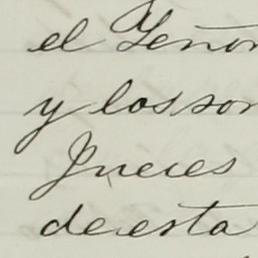 el Señor
y los sor
Jueces
de esta